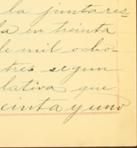 la junta res
da en treinta
de mil ocho
tres segun
lativa que
cinta y uno